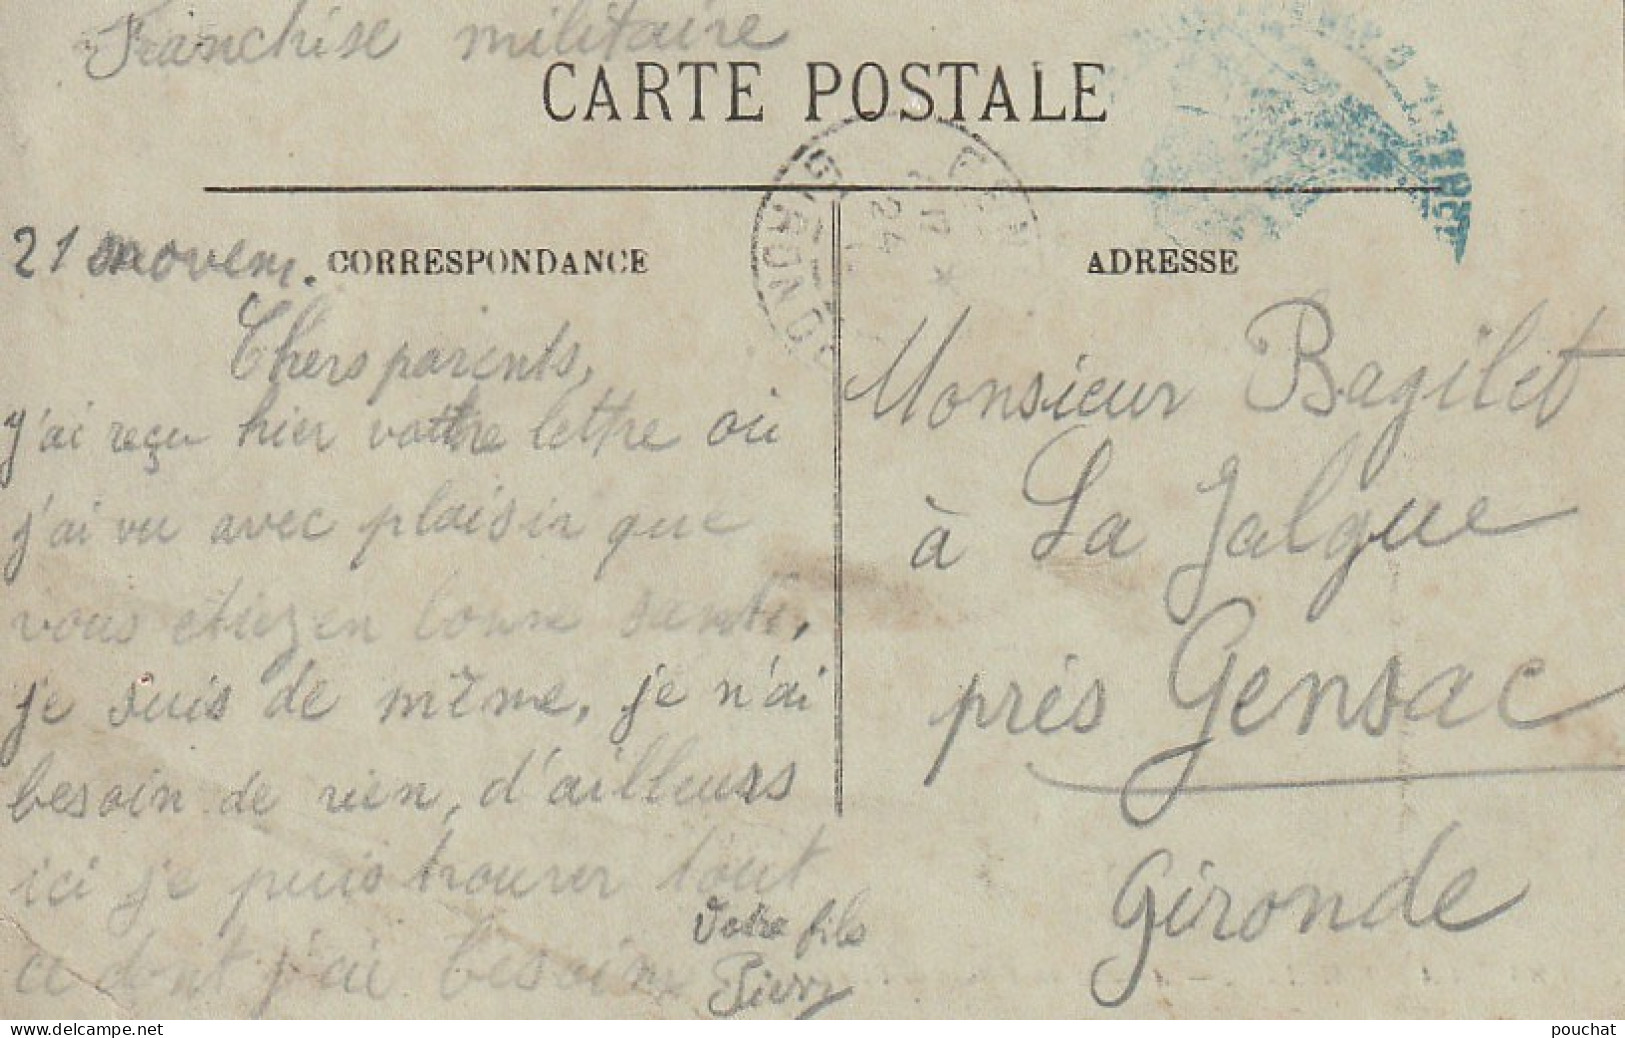 Franchise militaire
CARTE POSTALE
GENSAC
24
GIRONDE
21 novem. CORRESPONDANCE
Chers parents,
j'ai reçu hier vottre lettre où
j'ai vu avec plaisir que
vous etiez en bonne santé,
je suis de même, je n'ai
besoin de rien, d'ailleurs
ici je puis trouver tout
ce dont j'ai besoin
Votre fils
Pierre
ADRESSE
Monsieur Bagilet
à La Jalgue
près Gensac
Gironde
www.delcampe.net
pouchat